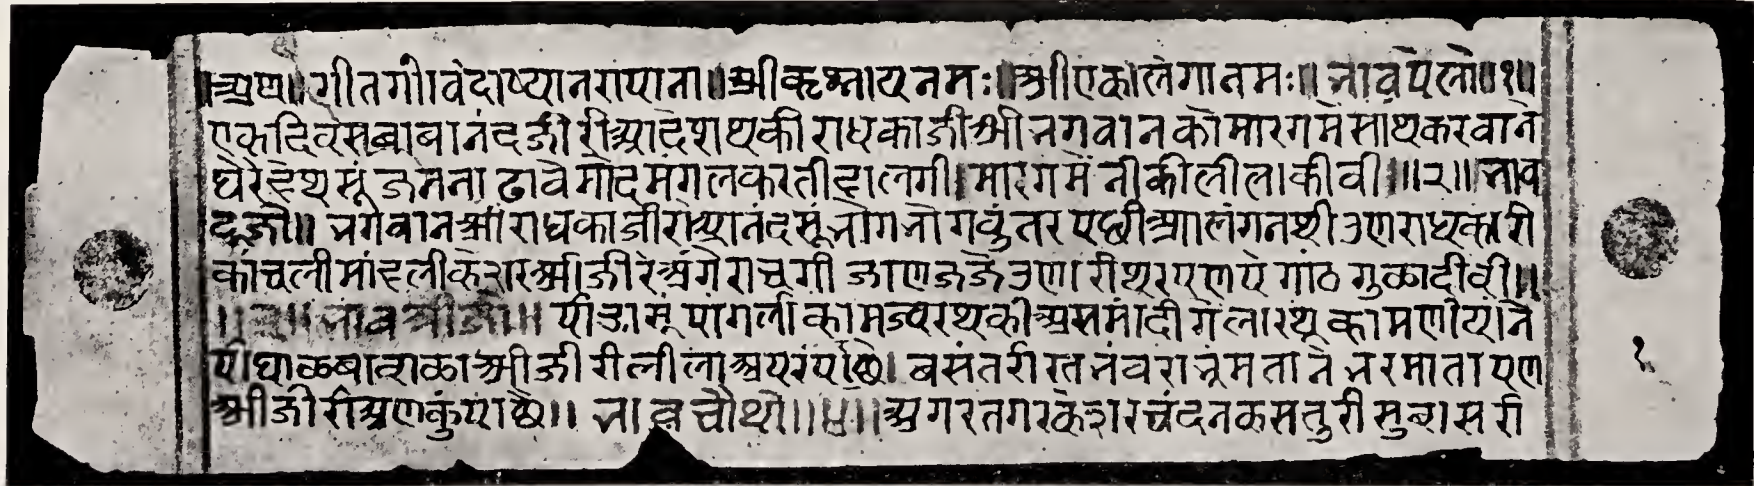 ॥अथ॥ गीतगीवंदाष्यानरापाना॥ श्रीकृष्नायनमः॥ श्रीएकलंगानमः॥ भावपेलौ॥१॥
एकदिवसबाबानंदजीरीआदेशथकीराधकाजीश्रीभगवानकौमारगमेंसाथकरवानें
घेरेहथसूंजमनाढावैगौदमंगलकरतीहालगी॥मारगमेंनीकीलीलाकीवी॥॥२॥भाव
दूजौ॥ भगवानश्रीराधकाजीराध्यानंदसूंभोगभोगवुंतरपछीआलंगनथीउणराधकारी
कांचलीमांहलीकेशरश्रीजीरेअंगेराचगीजाणजजेउणरीथरपणपेगांठगुळादीवी॥
॥३॥भावत्रीजौ॥ पीऊासूंपांगलीकामज्वरथकीअसमांदीगेलारथूकामणीयांनें
पीघाळबावाळाश्रीजीरीलीलाअपरंपाछे। बसंतरीरतनंवराभूमतानेंभरमातापण
श्रीजीरीअणकुंपाछे॥ भावचौथौ॥४॥अगरतगरकेशरचंदनकसतुरीसुबासरी
१